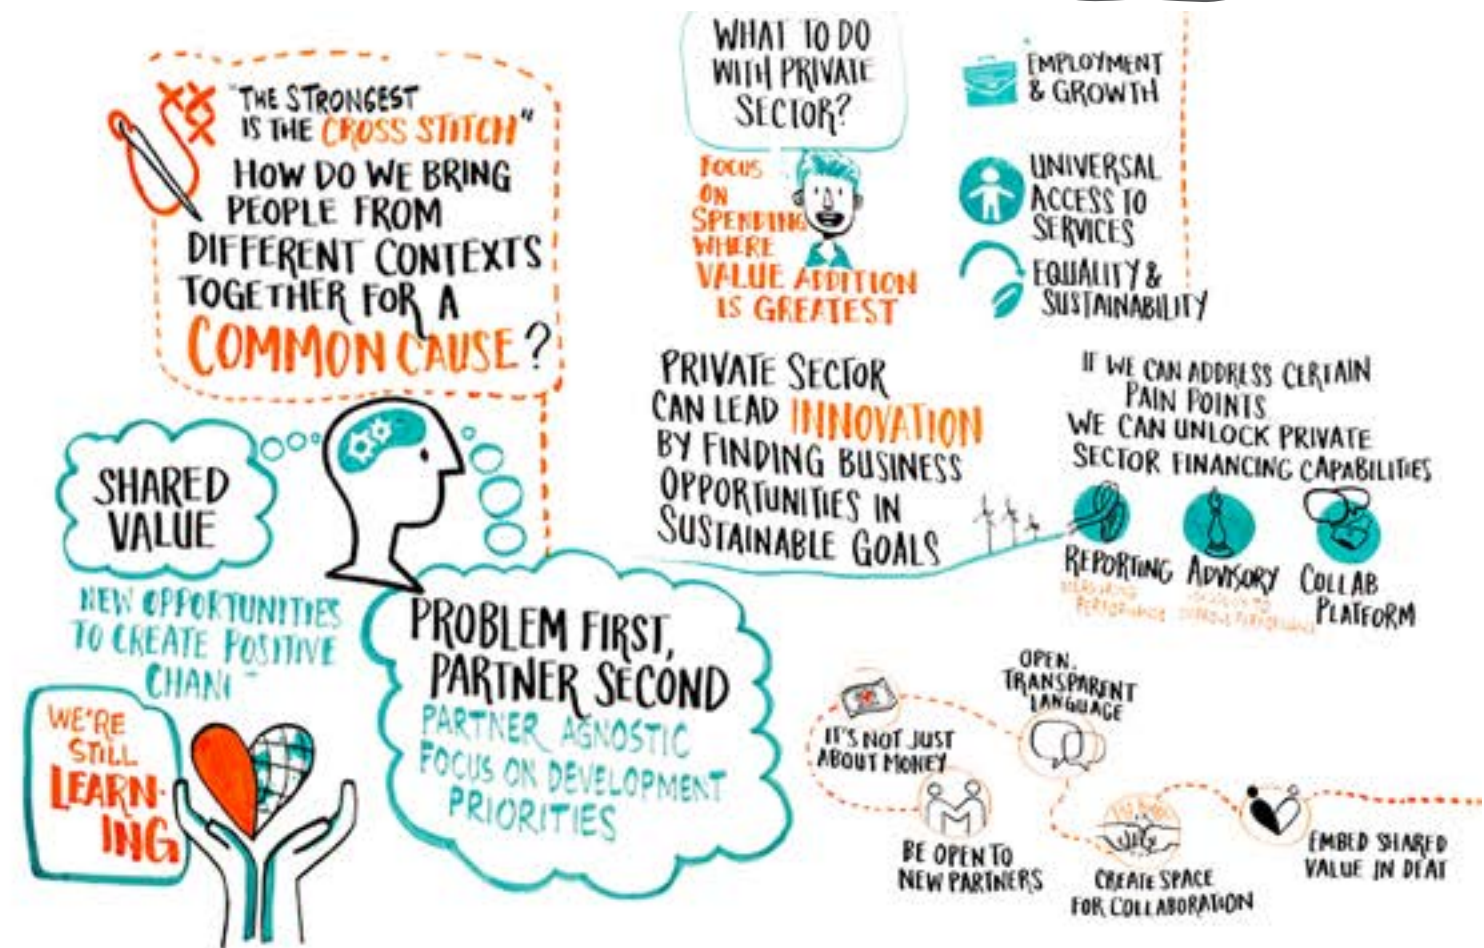 "THE STRONGEST
IS THE CROSS STITCH"
HOW DO WE BRING
PEOPLE FROM
DIFFERENT CONTEXTS
TOGETHER FOR A
COMMON CAUSE?
SHARED
VALUE
NEW OPPORTUNITIES
TO CREATE POSITIVE
WE'RE
STILL
LEARN-
ING
PROBLEM FIRST,
PARTNER SECOND
PARTNER AGNOSTIC
FOCUS ON DEVELOPMENT
PRIORITIES
WHAT TO DO
WITH PRIVATE
SECTOR?
FOCUS
ON
SPENDING
WHERE
VALUE ADDITION
IS GREATEST
EMPLOYMENT
& GROWTH
UNIVERSAL
ACCESS TO
SERVICES
EQUALITY &
SUSTAINABILITY
PRIVATE SECTOR
CAN LEAD INNOVATION
BY FINDING BUSINESS
OPPORTUNITIES IN
SUSTAINABLE GOALS
IF WE CAN ADDRESS CERTAIN
PAIN POINTS
WE CAN UNLOCK PRIVATE
SECTOR FINANCING CAPABILITIES
REPORTING
MEASURING
PERFORMANCE
ADVISORY
IMPROVE PERFORMANCE
COLLAB
PLATFORM
IT'S NOT JUST
ABOUT MONEY
OPEN,
TRANSPARENT
LANGUAGE
BE OPEN TO
NEW PARTNERS
CREATE SPACE
FOR COLLABORATION
EMBED SHARED
VALUE IN DFAT